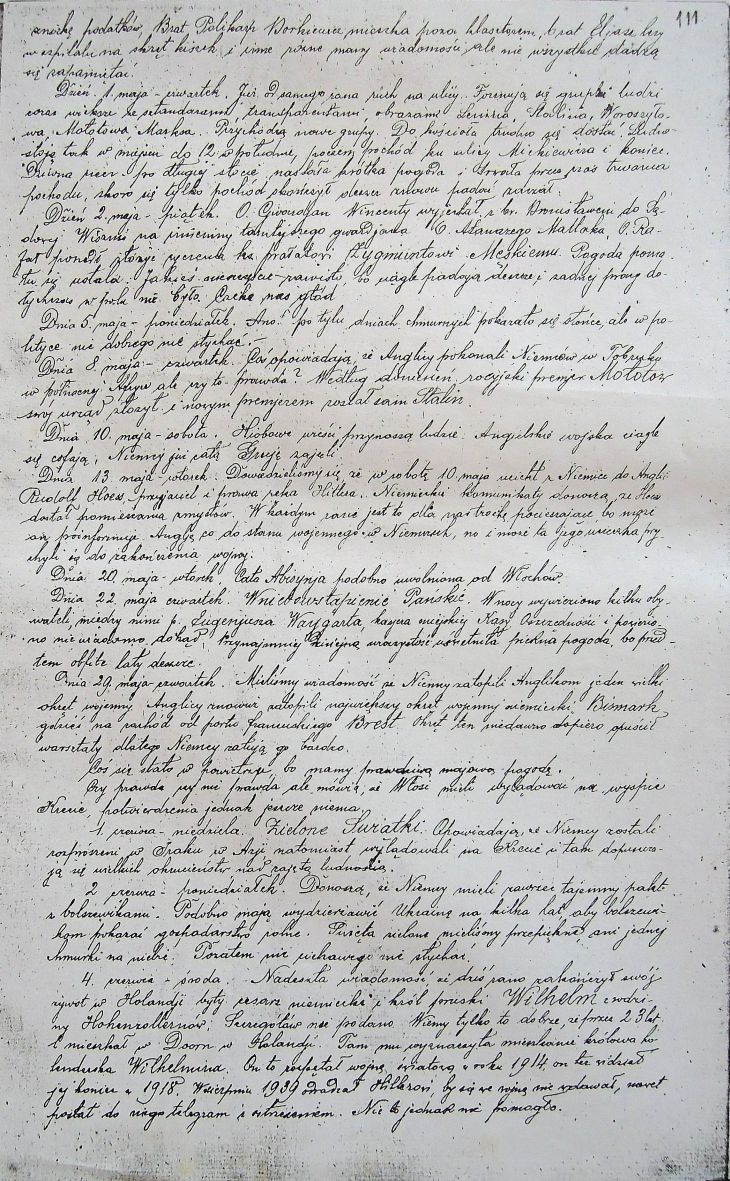 111
zniżkę podatków. Brat Polikarp Borkiewicz mieszka poza klasztorem, brat Eljasz leży
w szpitalu na skręt kiszek, i inne różne mamy wiadomości, ale nie wszystkie dadzą
się zapamiętać.
Dzień 1. maja - czwartek. Już od samego rana ruch na ulicy. Formują się grupki ludzi
coraz większe ze sztandarami, transparentami, obrazami Lenina, Stalina, Woroszyło-
wa, Mołotowa, Marksa. Przychodzą nowe grupy. Do kościoła trudno się dostać. Ludzie
stoją tak w miejscu do 12. w południe, poczem pochód ku ulicy Mickiewicza i koniec.
Dziwna rzecz - po długiej słocie nastała krótka pogoda i trwała przez czas trwania
pochodu, skoro się tylko pochód skończył deszcz znowu padać zaczął.
Dzień 2. maja - piątek. O. Gwardjan Wincenty wyjechał z br. Bronisławem do Są-
dowej Wiszni na imieniny tamtejszego gwardjana O. Atanazego O. Ra-
fał poszedł złożyć życzenia ks. prałatowi Zygmuntowi Męskiemu. Pogoda pomo-
tu się ustala. Jakieś bo ciągle padają deszcze i żadnej pracy do-
tychczas w polu nie było. Czeka nas głód.
Dnia 5. maja - poniedziałek. Ano! po tylu dniach chmurnych pokazało się słońce, ale w po-
lityce nic dobrego nie słychać.
Dnia 8. maja - czwartek. Coś opowiadają, że Anglicy pokonali Niemców w Tobruku
w północnej Afryce ale czy to prawda? Według doniesień rosyjski premjer Mołotow
swój urząd złożył i nowym premjerem został sam Stalin.
Dnia 10. maja - sobota. Hiobowe wieści przynoszą ludzie. Angielskie wojska ciągle
się cofają, Niemcy już całą Grecję zajęli.
Dnia 13. maja - wtorek. Dowiedzieliśmy się, że w sobotę 10. maja uciekł z Niemiec do Anglji
Rudolf Hoess, przyjaciel i prawa ręka Hitlera. Niemieckie komunikaty donoszą, że Hoess
dostał pomieszania zmysłów. W każdym razie jest to dla nas trochę pocieszające bo może
on poinformuje Anglję co do stanu wojennego w Niemczech, no i może ta jego ucieczka przy-
chyli się do zakończenia wojny.
Dnia 20. maja - wtorek. Cała Abisynja podobno uwolniona od Włochów.
Dnia 22. maja czwartek. Wniebowstąpienie Pańskie. W nocy wywieziono kilku oby-
wateli, między nimi p. Eugenjusza Waygarta, kasjera miejskiej Kasy Oszczędności i powiezio-
no niewiadomo dokąd. Przynajmniej dzisiejszą uroczystość uświetniła piękna pogoda, bo przed-
tem obfite lały deszcze.
Dnia 29. maja - czwartek. Mieliśmy wiadomość że Niemcy zatopili Anglikom jeden wielki
okręt wojenny. Anglicy znowuż zatopili największy okręt wojenny niemiecki, Bismark
gdzieś na zachód od portu francuskiego Brest. Okręt ten niedawno dopiero opuścił
warsztaty dlatego Niemcy żałują go bardzo.
Coś się stało w powietrzu, bo mamy prawdziwą majową pogodę.
Czy prawda czy nie prawda ale mówią, że Włosi mieli wylądować na wyspie
Krecie, potwierdzenia jednak jeszcze niema.
1. czerwca - niedziela. Zielone Świątki. Opowiadają, że Niemcy zostali
rozproszeni w Iraku w Azji natomiast wylądowali na Krecie i tam dopuszcza-
ją się wielkich okrucieństw nad zajętą ludnością.
2. czerwca - poniedziałek. Donoszą, że Niemcy mieli zawrzeć tajemny pakt
z bolszewikami. Podobno mają wydzierżawić Ukrainę na kilka lat, aby bolszewi-
kom pokazać gospodarstwo rolne. Święta zielone mieliśmy przepiękne, ani jednej
chmurki na niebie. Pozatem nic ciekawego nie słychać.
4. czerwca - środa. Nadeszła wiadomość że dziś rano zakończył swój
żywot w Holandji były cesarz niemiecki i król pruski Wilhelm z rodzi-
ny Hohenzollernów. Szczegółów nie podano. Wiemy tylko to dobrze, że przez 23 lat
mieszkał w Doorn w Holandji. Tam mu wyznaczyła mieszkanie królowa ho-
lenderska Wilhelmina. On to rozpętał wojnę światową w roku 1914, on też widział
jej koniec w 1918. W sierpniu 1939 odradzał Hitlerowi, by się we wojnę nie wdawał, nawet
posłał do niego telegram z ostrzeżeniem. Nic to jednak nie pomogło.